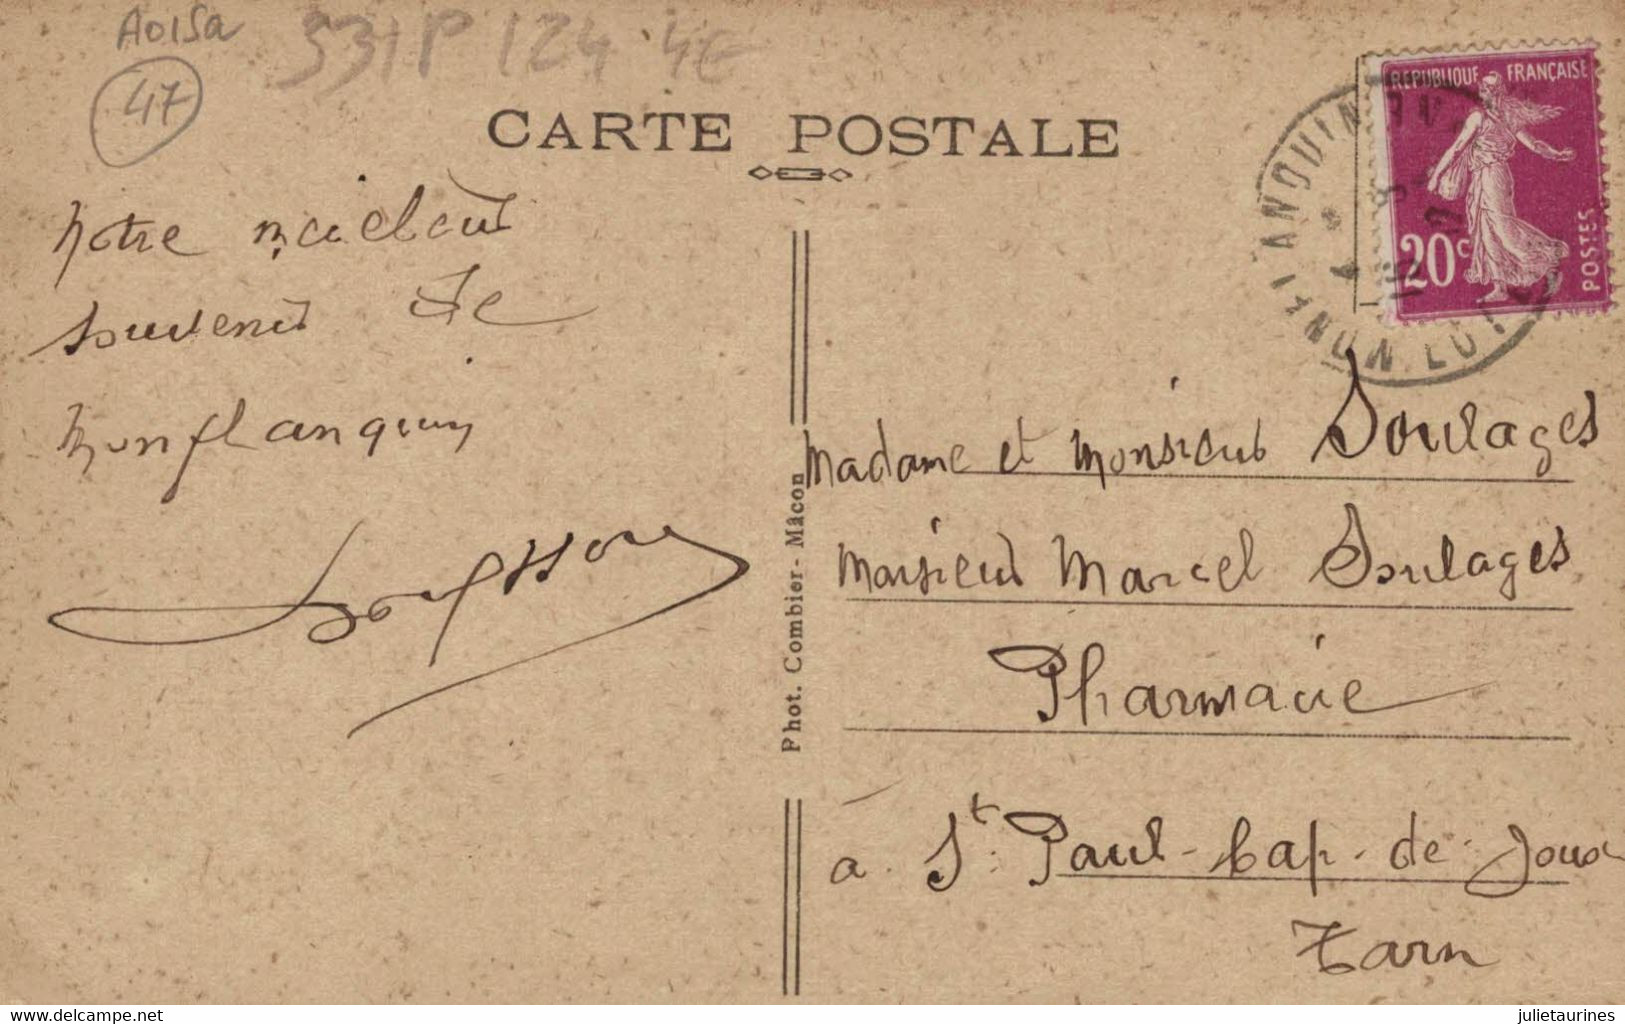 A015a
47
331P 124 4E
CARTE POSTALE
Notre meilleur
souvenir de
Monflanquin
Phot. Combier - Mâcon
REPUBLIQUE FRANÇAISE
20c
POSTES
MONFLANQUIN
LOT
Madame et Monsieur Soulages
Monsieur Marcel Soulages
Pharmacie
à St Paul-Cap-de-Joux
Tarn
www.delcampe.net
julietaurines